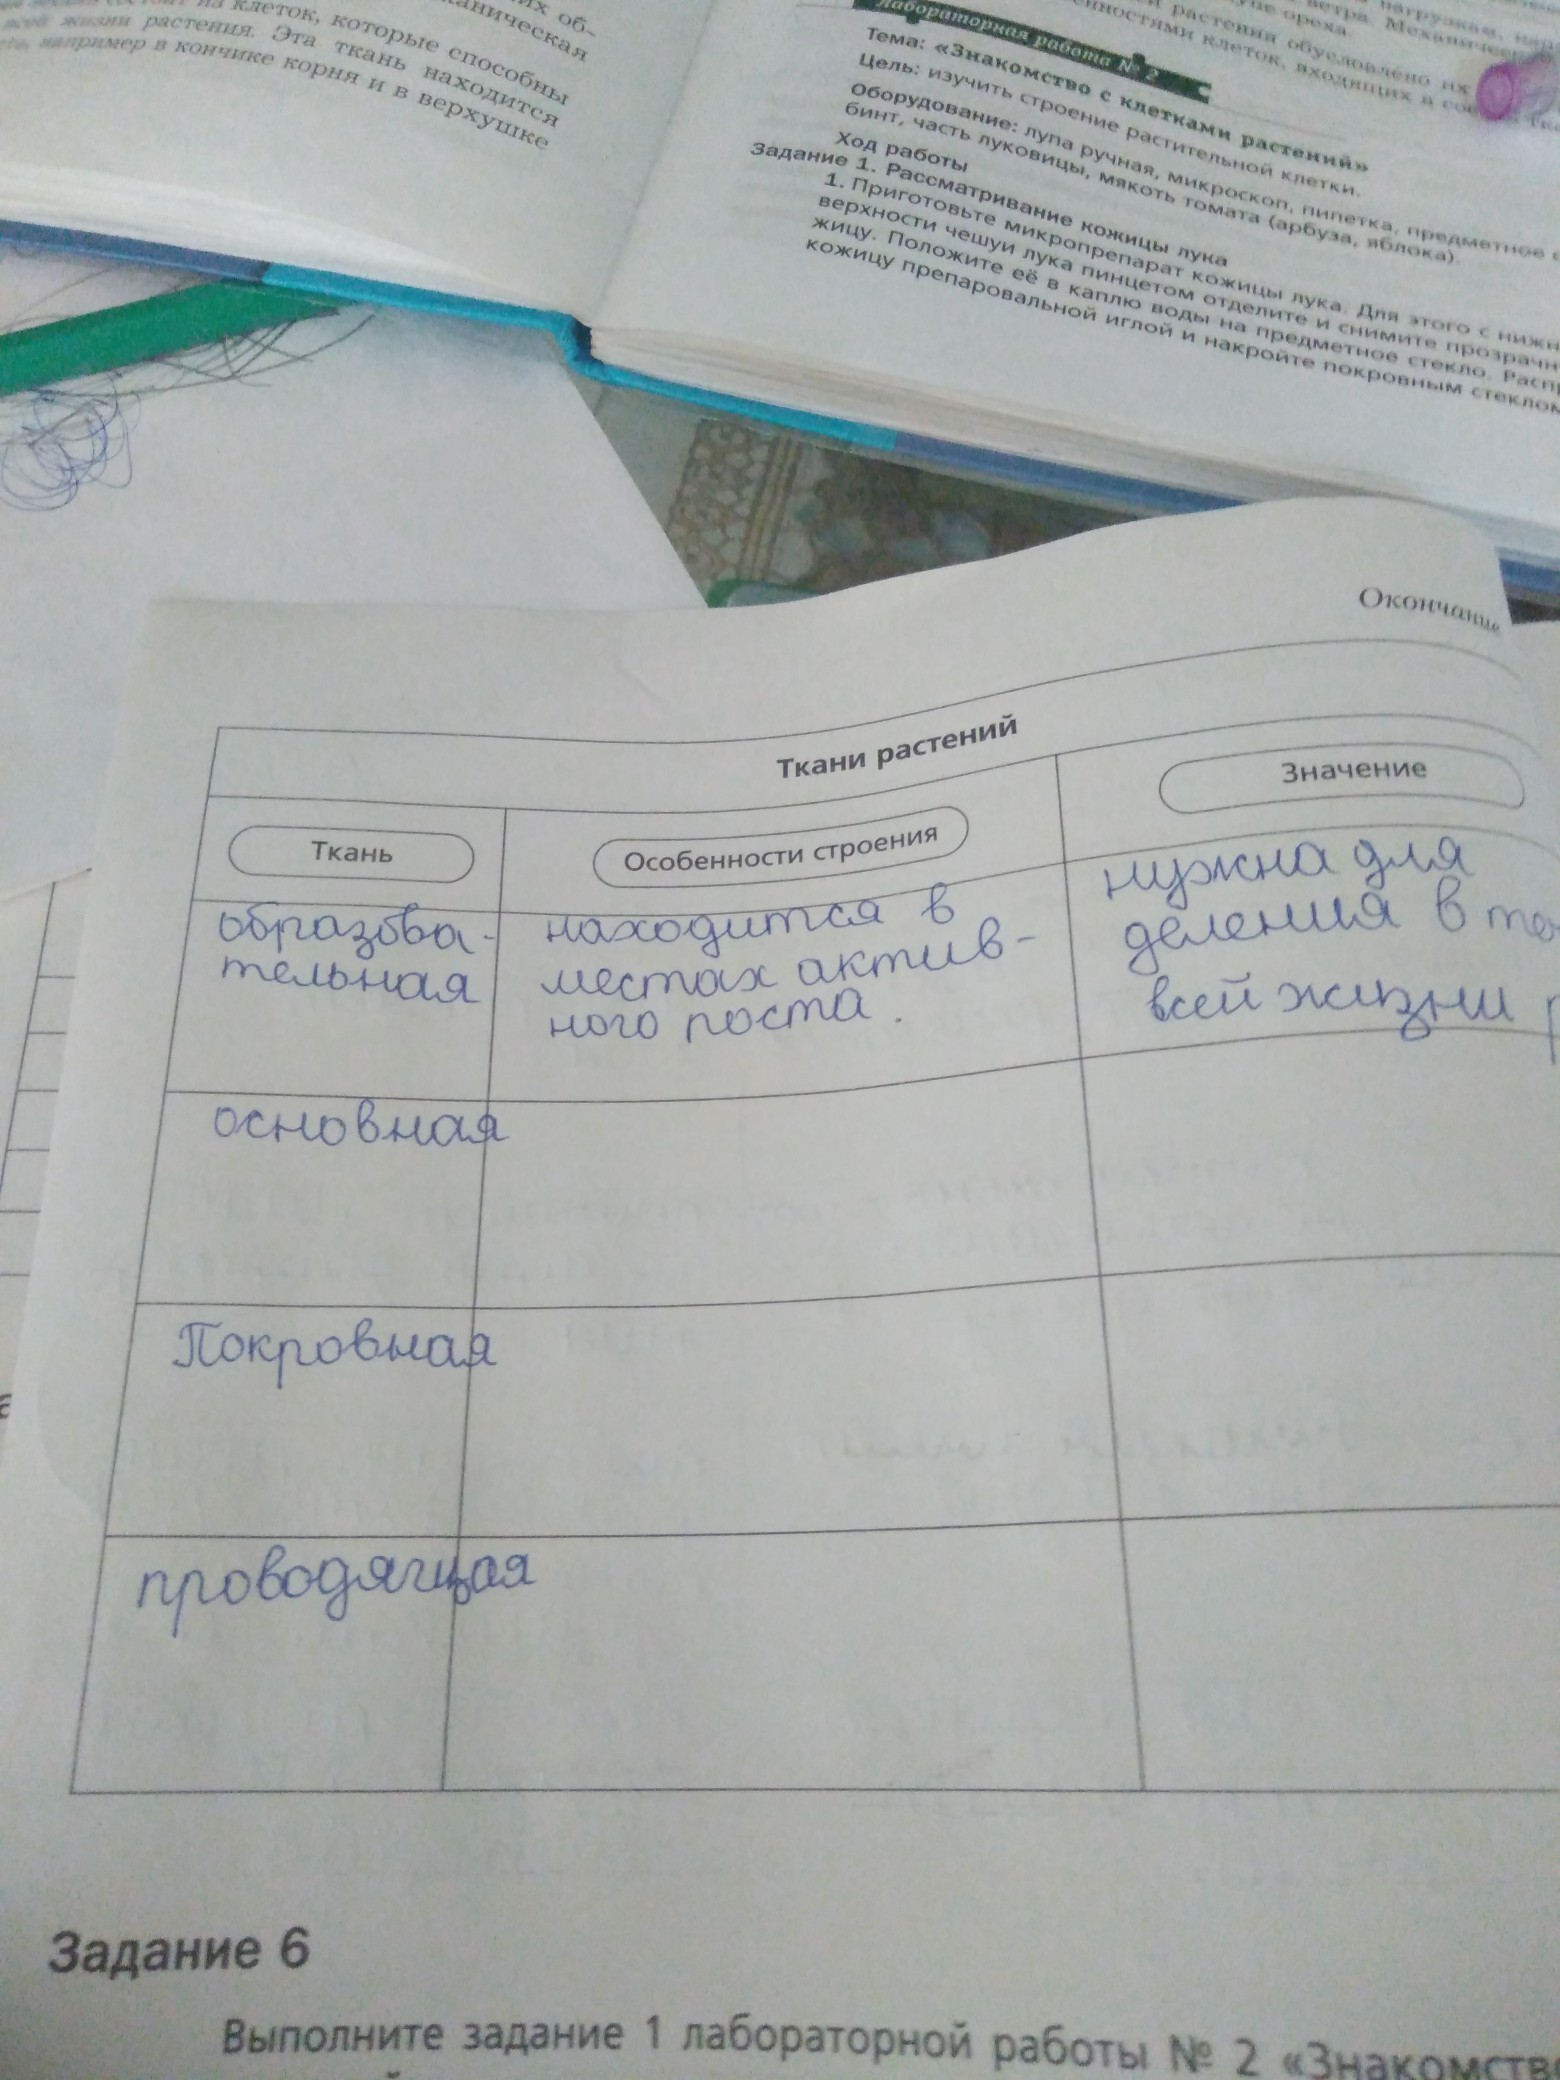 из клеток, которые способны
жизни растения. Эта ткань находится
например в кончике корня и в верхушке
Лабораторная работа № 2
Тема: «Знакомство с клетками растений»
Цель: изучить строение растительной клетки.
Оборудование: лупа ручная, микроскоп, пипетка, предметное
бинт, часть луковицы, мякоть томата (арбуза, яблока).
Ход работы
Задание 1. Рассматривание кожицы лука
1. Приготовьте микропрепарат кожицы лука. Для этого с
верхности чешуи лука пинцетом отделите и снимите
жицу. Положите её в каплю воды на предметное стекло.
кожицу препаровальной иглой и накройте покровным стеклом
Окончание
Ткани растений
Ткань
Особенности строения
Значение
образова-
тельная
находится в
местах актив-
ного роста.
нужна для
деления в
всей жизни
основная
Покровная
проводящая
Задание 6
Выполните задание 1 лабораторной работы № 2 «Знакомство